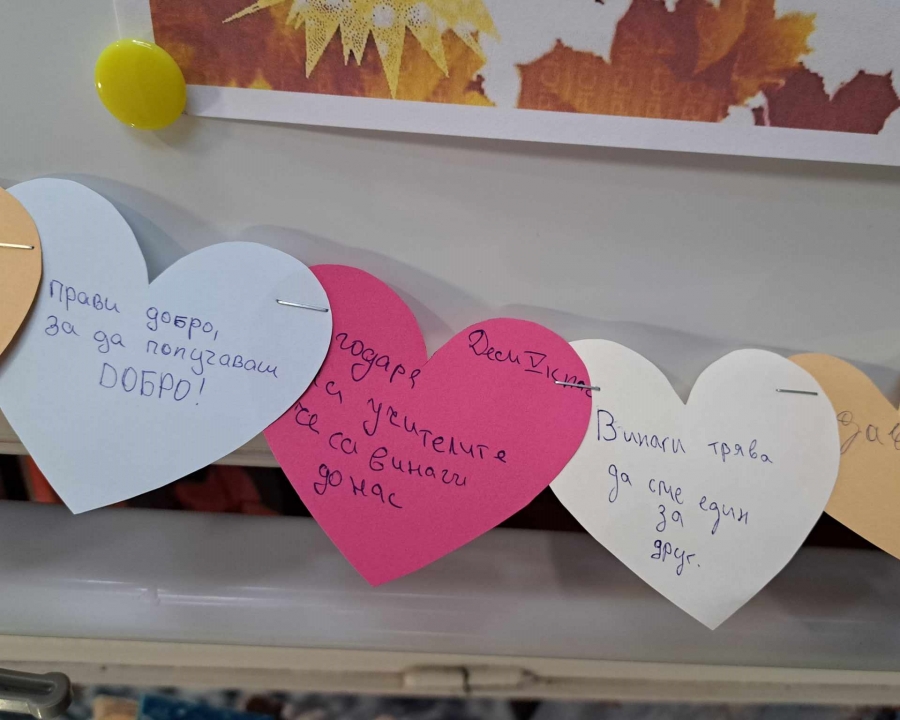 прави добро,
за да получаваш
ДОБРО!
Деси V клас
годаря
и учителите
че са винаги
до нас
Винаги трява
да сме един
за
друг.